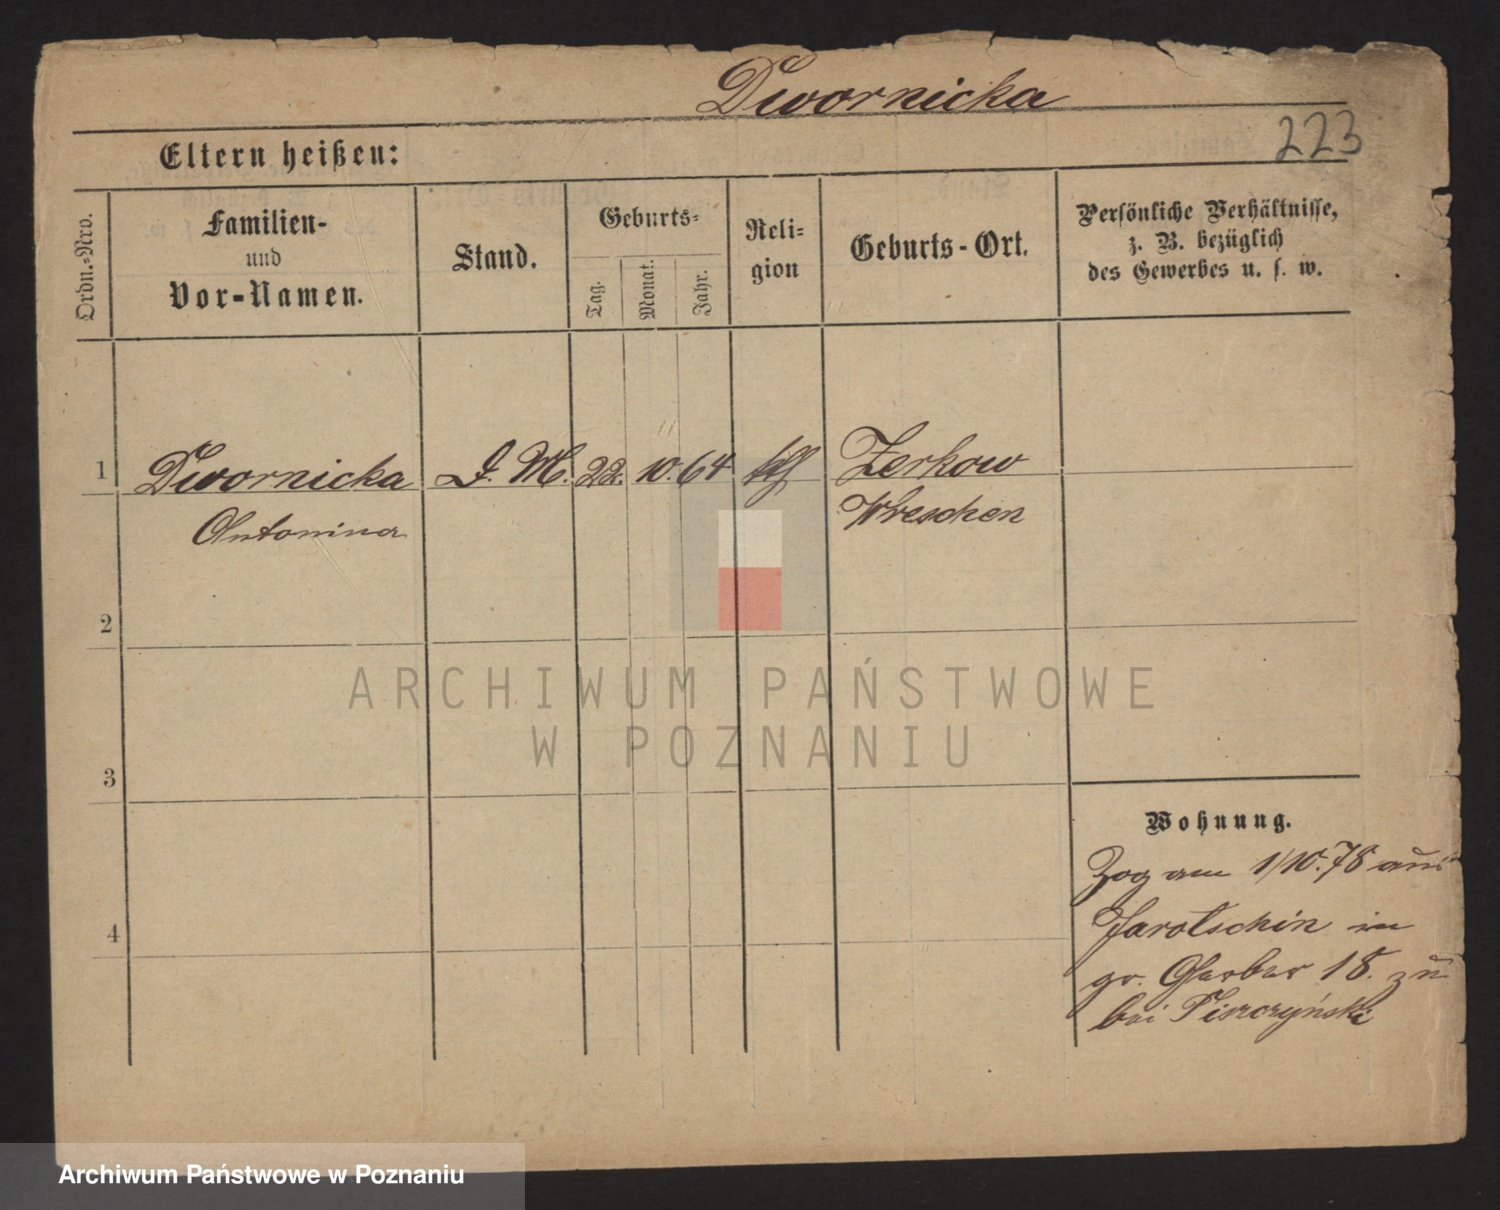 Dwornicka
223
Eltern heißen:
Ordn.-Nro.
Familien-
und
Vor-Namen.
Stand.
Geburts-
Tag.
Monat.
Jahr.
Reli-
gion
Geburts-Ort.
Persönliche Verhältnisse,
z. B. bezüglich
des Gewerbes u. s. w.
1
Dwornicka D. M. 22. 10. 64 kth Zerkow
Antonina Wreschen
2
3
4
Wohnung.
Zog am 1/10.78 aus
Jarotschin in
gr. Gerber 18. zu
bei Piszczyński
ARCHIWUM PAŃSTWOWE
W POZNANIU
Archiwum Państwowe w Poznaniu